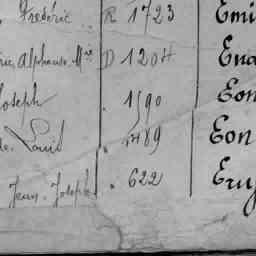 Frédéric R 1723 Emi
ric Alphonse M D 1204 Eua
Joseph . 1590 Eon
de Louis " 489 Eon
Jean-Joseph " 622 Eruy